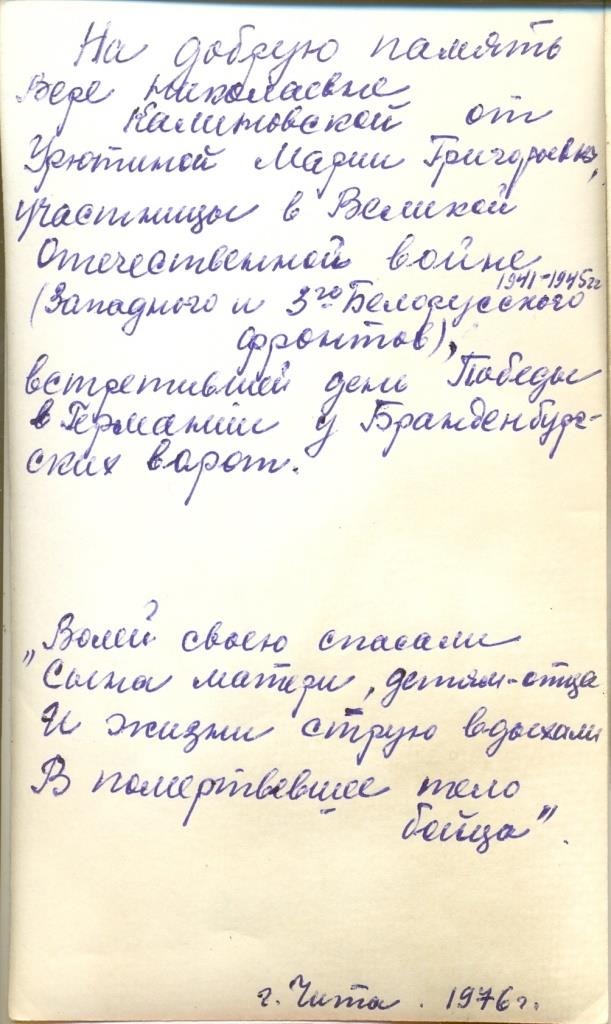 На добрую память
Вере Николаевне
Калиновской от
Урютиной Марии Григорьевны,
участницы в Великой
Отечественной войне
1941-1945гг
(Западного и 3го Белорусского
фронтов),
встретившей день Победы
в Германии у Бранденбург-
ских ворот.
„Волей своею спасали
Сына матери, детям-отца
И жизни струю вдыхали
В помертвевшее тело
бойца".
г. Чита. 1976г.